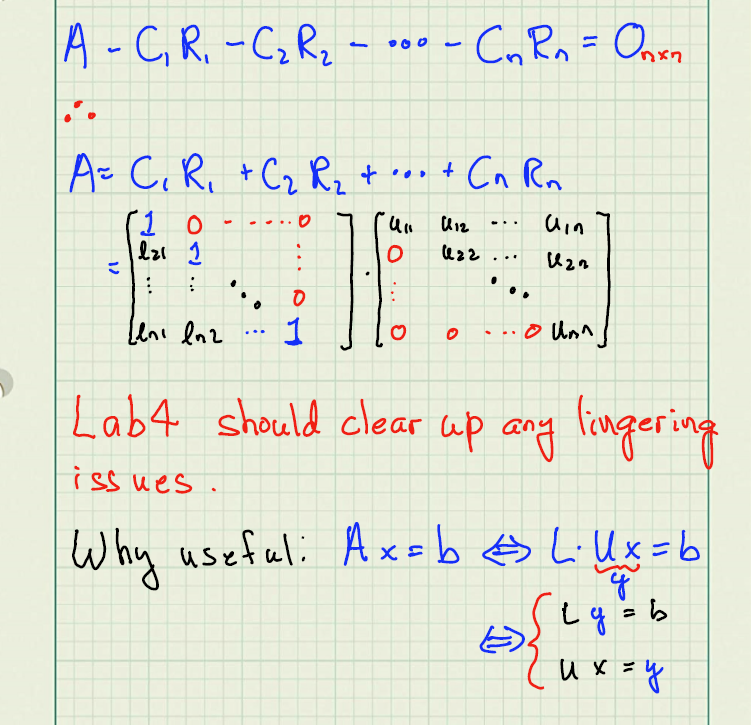 A - C₁R₁ - C₂R₂ - ... - CₙRₙ = Oₙₓₙ
∴
A = C₁R₁ + C₂R₂ + ... + CₙRₙ
= [1 0 ----- 0] . [u₁₁ u₁₂ ... u₁ₙ]
[l₂₁ 1 ⋮] [0 u₂₂ ... u₂ₙ]
[⋮ ⋮ ⋱ 0] [⋮ ⋱]
[lₙ₁ lₙ₂ ... 1] [0 0 ... 0 uₙₙ]
Lab4 should clear up any lingering
issues.
Why useful: Ax = b ⇔ L·Ux = b
y
⇔ { Ly = b
Ux = y